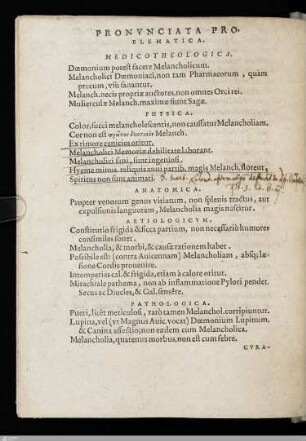 PRONVNCIATA PRO-
BLEMATICA.
MEDICOTHEOLOGICA.
Dæmonium potest facere Melancholicum.
Melancholici Dæmoniaci, non tam Pharmacorum, quàm
precum, viis sanantur.
Melanch. necis propriæ auctores, non omnes Orci rei.
Mulierculæ Melanch. maximæ fiunt Sagæ.
PHYSICA.
Color, succi melancholescentis, non caussatur Melancholiam.
Cor non est melanch.
Ex timore canicies oritur.
Melancholici Memoriæ debilitate laborant.
Melancholici fiunt, sunt ingeniosi.
Hyeme minus, reliquis anni partib. magis Melanch. florent.
Spiritus non sunt animati.
ANATOMICA.
Propter venarum genus vitiatum, non splenis tractus, aut
expulsionis languorem, Melancholia magis nascitur.
AETIOLOGICVM.
Constitutio frigida & sicca partium, non necessariò humores
consimiles fouet.
Melancholia, & morbi, & caussæ rationem habet.
Possibile est (contra Auicennam) Melancholiam, absq; læ-
sione Cordis prouenire.
Intemperies cal. & frigida, etiam à calore oritur.
Mirachiale pathema, non ab inflammatione Pylori pendet.
Secus ac Diocles, & Gal. sensêre.
PATHOLOGICA.
Pueri, licèt meticulosi, rarò tamen Melanchol. corripiuntur.
Lupina, vel (vt Magnus Auic. vocat) Dæmonium Lupinum,
& Canina affectio, non eædem cum Melancholica.
Melancholia, quatenus morbus, non est cum febre.
CVRA-